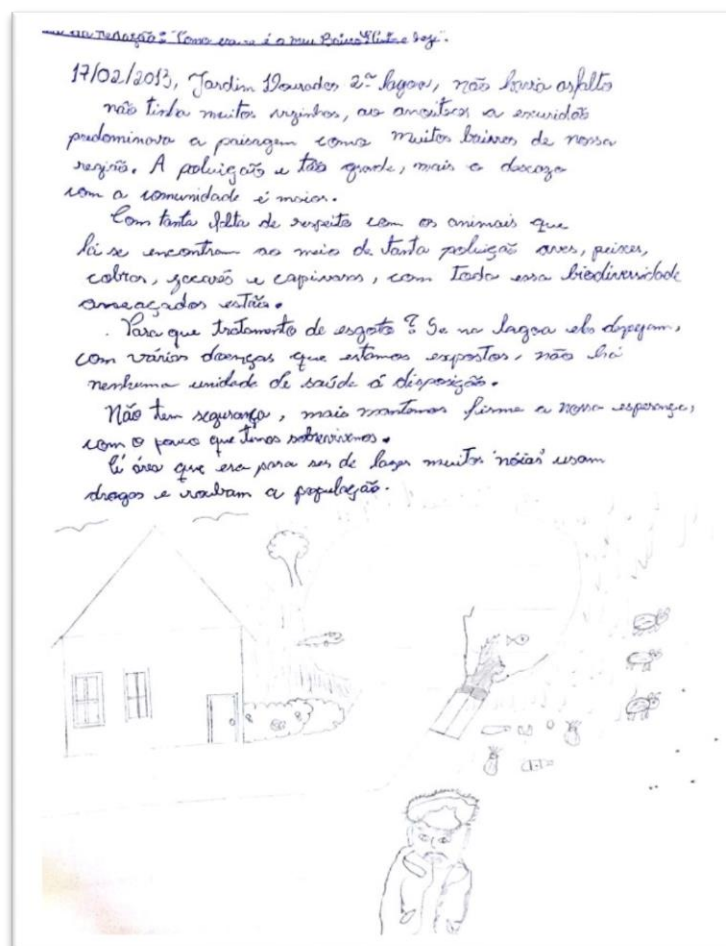 redação: "Como era e é o meu Bairro
17/02/2013, Jardim Dourados 2ª lagoa, não havia asfalto
não tinha muitos vizinhos, ao anoitecer a escuridão
predominava a paisagem como muitos bairros de nossa
região. A poluição e tão grande, mais o descazo
com a comunidade é maior.
Com tanta falta de respeito com os animais que
lá se encontram ao meio de tanta poluição aves, peixes,
cobras, jacarés e capivaras, com toda essa biodiversidade
ameaçados estão.
Para que tratamento de esgoto? Se na lagoa eles despejam,
com várias doenças que estamos expostos, não há
nenhuma unidade de saúde á disposição.
Não tem segurança, mais mantemos firme a nossa esperança,
com o pouco que temos sobrevivemos.
área que era para ser de lazer muitos 'nóias' usam
drogas e roubam a população.